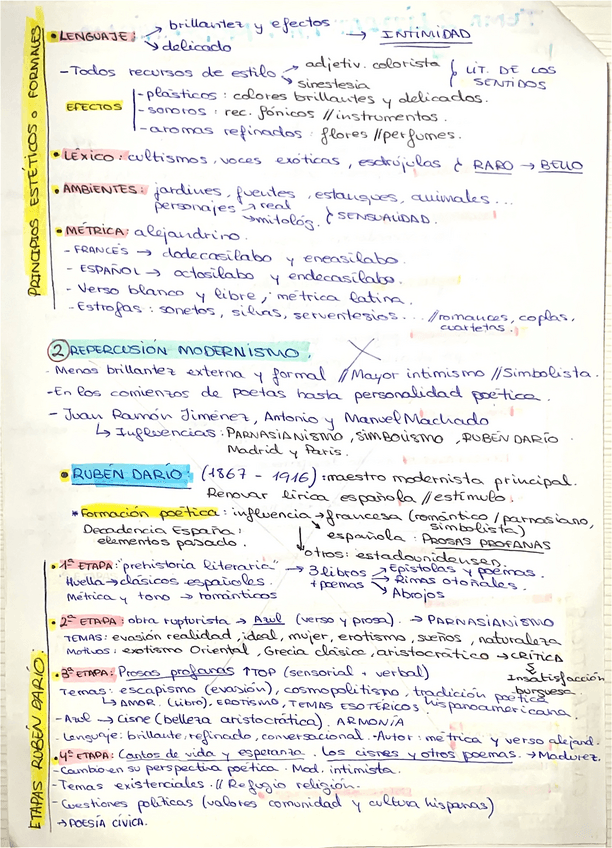 PRINCIPIOS ESTÉTICOS o FORMALES
• LENGUAJE: → brillantez y efectos → INTIMIDAD
↘ delicado
- Todos recursos de estilo → adjetiv. colorista
↘ sinestesia
LIT. DE LOS SENTIDOS
EFECTOS
- plásticos: colores brillantes y delicados.
- sonoros: rec. fónicos // instrumentos.
- aromas refinados: flores // perfumes.
• LÉXICO: cultismos, voces exóticas, esdrújulas RARO → BELLO
• AMBIENTES: jardines, fuentes, estanques, animales...
personajes → real
→ mitológ. SENSUALIDAD.
• MÉTRICA: alejandrino.
- FRANCÉS → dodecasílabo y eneasílabo.
- ESPAÑOL → octosílabo y endecasílabo.
- Verso blanco y libre, métrica latina.
- Estrofas: sonetos, silvas, serventesios... // romances, coplas,
cuartetas.
2 REPERCUSIÓN MODERNISMO.
- Menos brillantez externa y formal // Mayor intimismo // Simbolista.
- En los comienzos de poetas hasta personalidad poética.
- Juan Ramón Jiménez, Antonio y Manuel Machado
↳ Influencias: PARNASIANISMO, SIMBOLISMO, RUBÉN DARÍO.
Madrid y París.
• RUBÉN DARÍO: (1867 - 1916): maestro modernista principal.
Renovar lírica española // estímulo.
* Formación poética: influencia → francesa (romántico / parnasiano,
simbolista)
Decadencia España:
elementos pasado.
española: PROSAS PROFANAS
otros: estadounidenses.
ETAPAS RUBÉN DARÍO:
• 1ª ETAPA: "prehistoria literaria" → 3 libros → Epístolas y poemas.
Huella → clásicos españoles. + poemas → Rimas otoñales.
Métrica y tono → románticos ↘ Abrojos
• 2ª ETAPA: obra rupturista → Azul (verso y prosa). → PARNASIANISMO
TEMAS: evasión realidad, ideal, mujer, erotismo, sueños, naturaleza
Motivos: exotismo Oriental, Grecia clásica, aristocrático → CRÍTICA
Insatisfacción
burguesa.
3ª ETAPA: Prosas profanas ↑TOP (sensorial + verbal)
Temas: escapismo (evasión), cosmopolitismo, tradición poética
hispanoamericana.
↳ AMOR. (Libro), EROTISMO, TEMAS ESOTÉRICOS
- Azul → Cisne (belleza aristocrática). ARMONÍA
- Lenguaje: brillante, refinado, conversacional. - Autor: métrica y verso alejand.
• 4ª ETAPA: Cantos de vida y esperanza. Los cisnes y otros poemas. → Madurez.
- Cambio en su perspectiva poética. Mod. intimista.
- Temas existenciales. // Refugio religión.
- Cuestiones políticas (valores comunidad y cultura hispanas)
→ POESÍA CÍVICA.